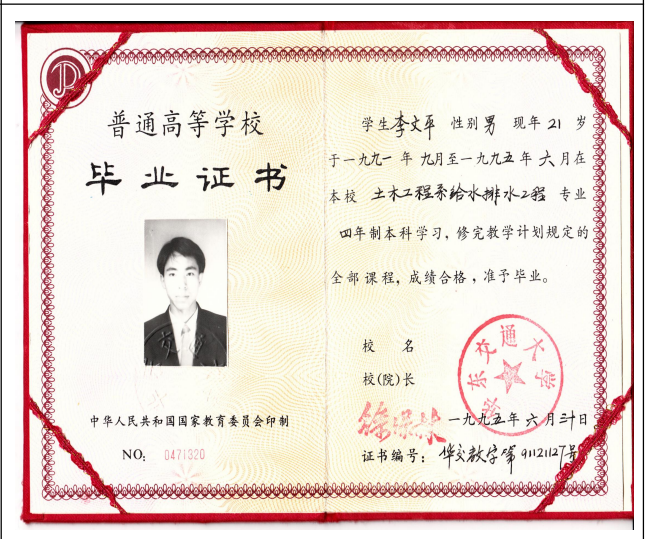 普通高等学校
毕业证书
中华人民共和国国家教育委员会印制
NO: 0471320
学生李文平 性别男 现年21岁
于一九九一年九月至一九九五年六月在
本校 土木工程系给水排水工程 专业
四年制本科学习,修完教学计划规定的
全部课程,成绩合格,准予毕业。
校 名
华东交通大学
校(院)长
一九九五年六月三十日
证书编号: 华交教字第91121127号